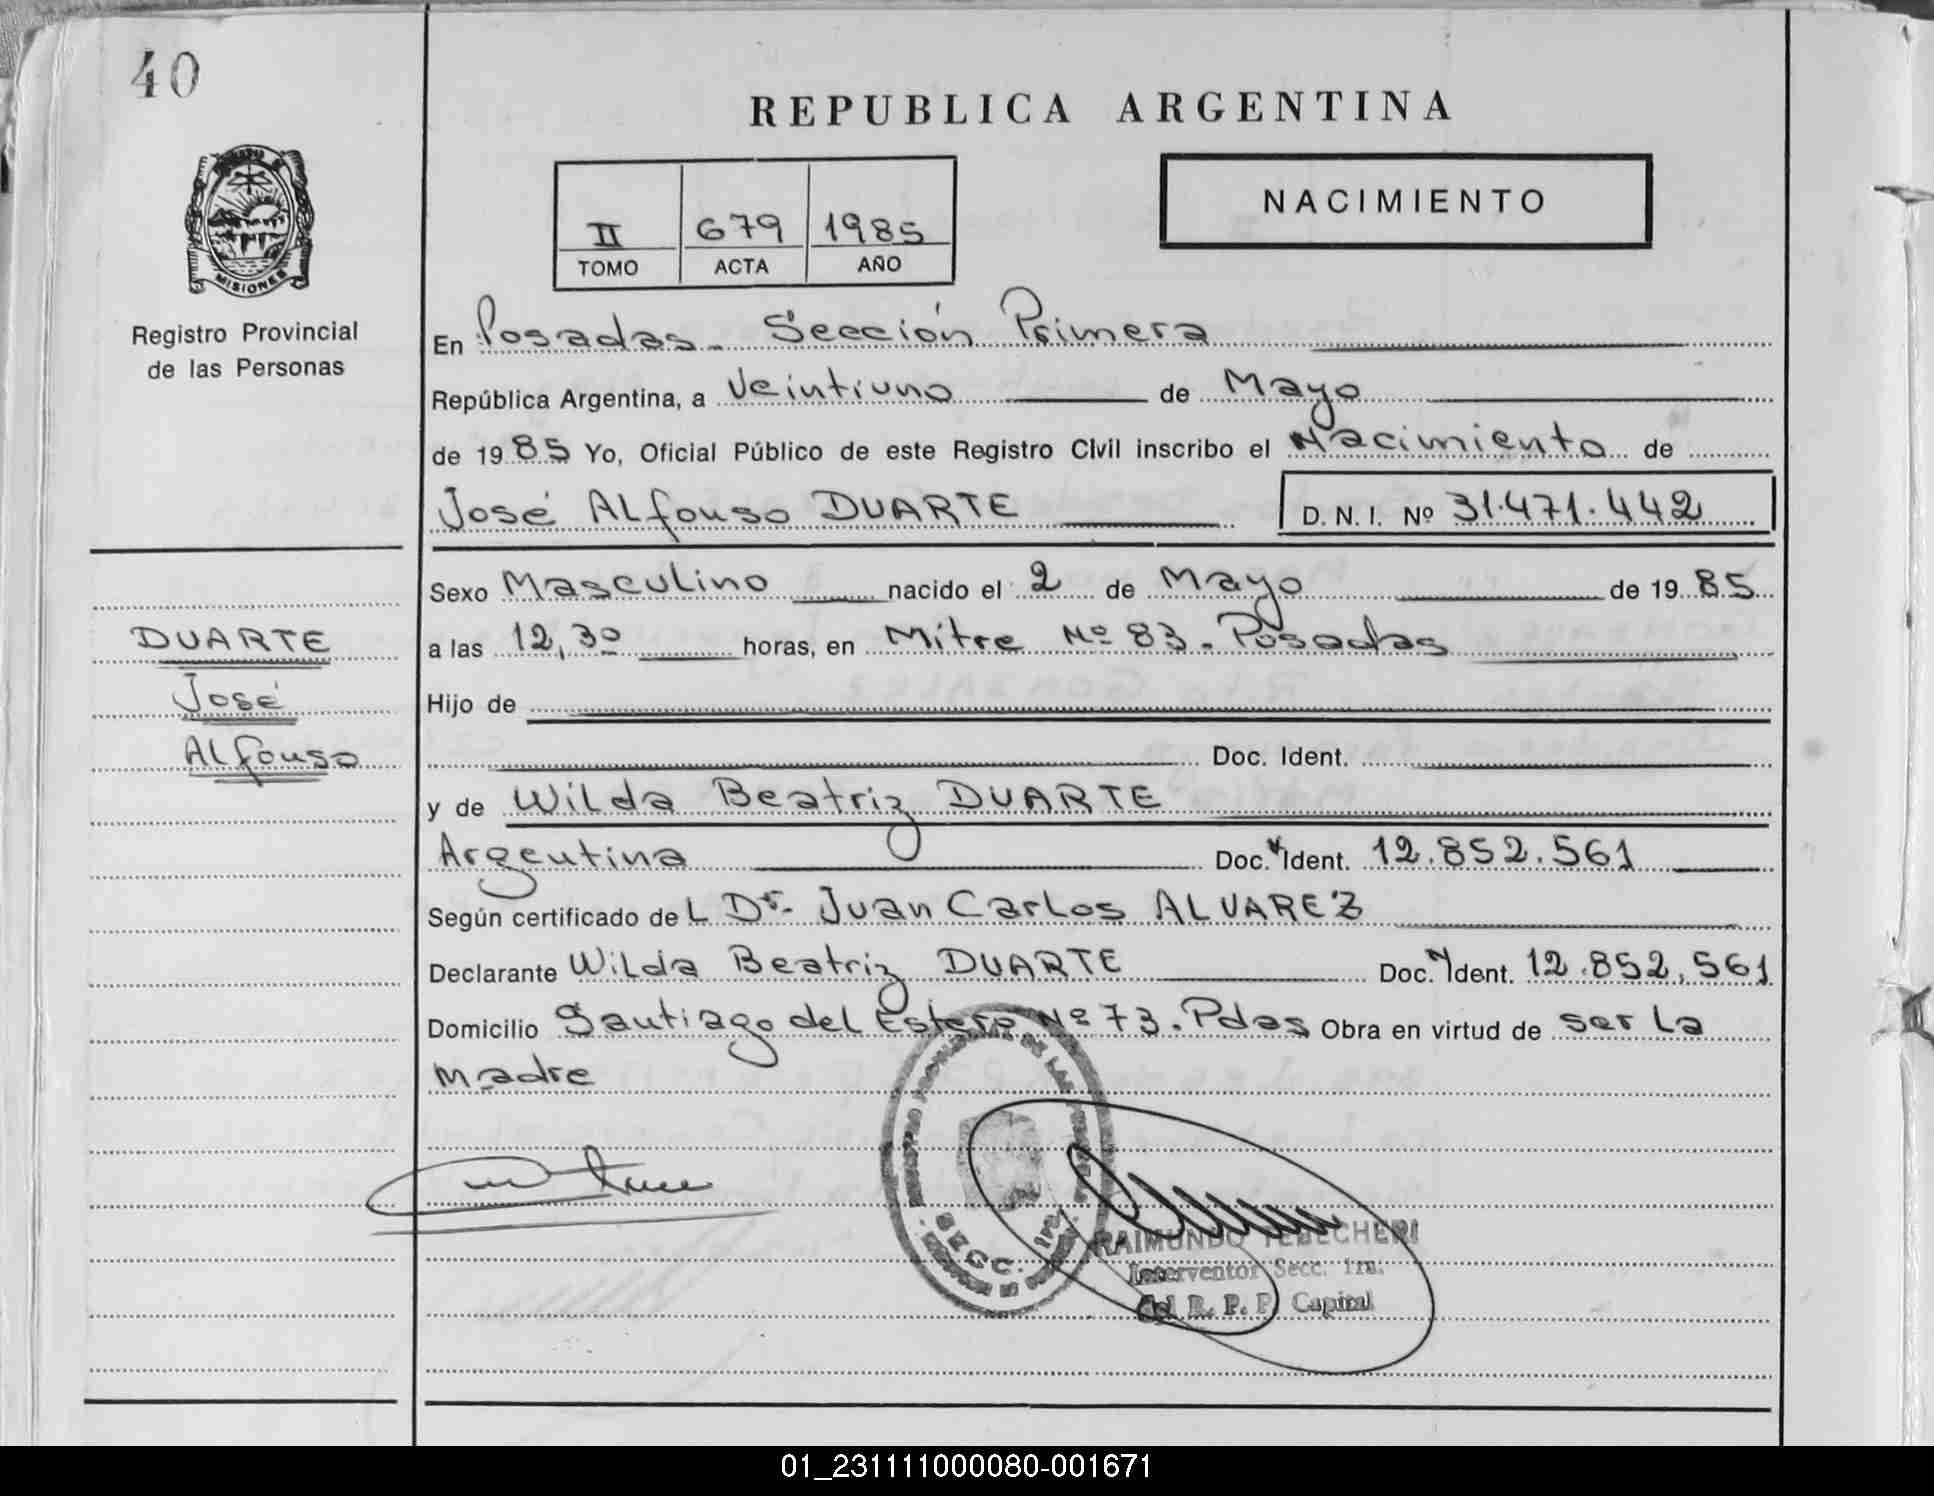 40
REPUBLICA ARGENTINA
NACIMIENTO
II 679 1985
TOMO ACTA AÑO
MISIONES
Registro Provincial
de las Personas
En Posadas. Sección Primera
República Argentina, a Veintiuno de Mayo
de 1985 Yo, Oficial Público de este Registro Civil inscribo el Nacimiento de
José Alfonso DUARTE D. N. I. Nº 31.471.442
DUARTE
José
Alfonso
Sexo Masculino nacido el 2 de Mayo de 1985
a las 12,30 horas, en Mitre Nº 83. Posadas
Hijo de
Doc. Ident.
y de Wilda Beatriz DUARTE
Argentina Doc. Ident. 12.852.561
Según certificado del Dr. Juan Carlos ALVAREZ
Declarante Wilda Beatriz DUARTE Doc. Ident. 12.852.561
Domicilio Santiago del Estero Nº 73. Pdas Obra en virtud de ser la
Madre
SECC. 1ra.
RAIMUNDO TEBECHERI
Interventor Secc. 1ra.
del R. P. P. Capital
01_231111000080-001671